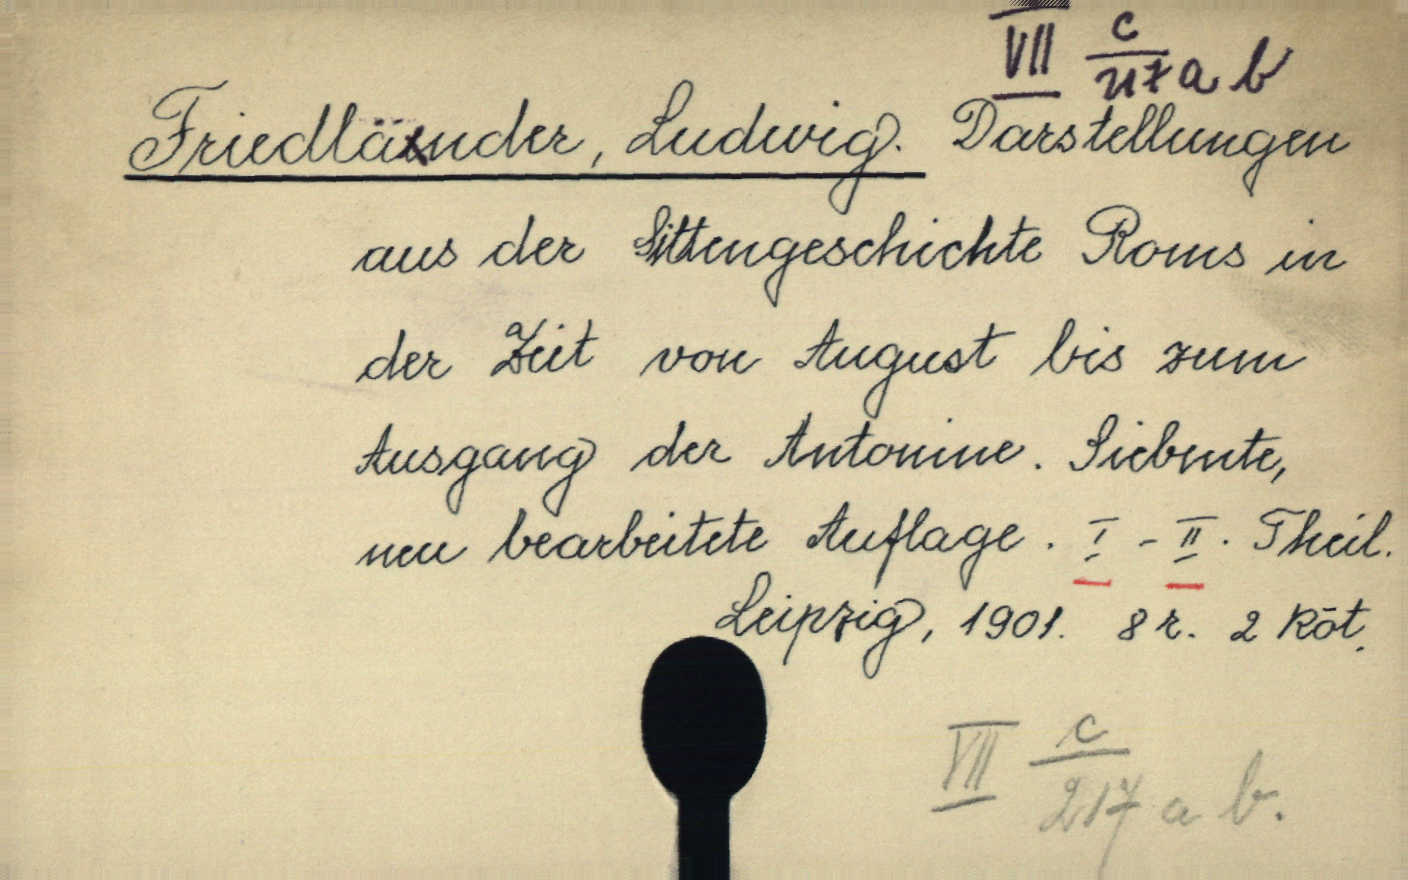 VII c/217 a b
Friedländer, Ludwig. Darstellungen
aus der Sittengeschichte Roms in
der Zeit von August bis zum
Ausgang der Antonine. Siebente,
neu bearbeitete Auflage. I - II. Theil.
Leipzig, 1901. 8 r. 2 Köt.
VII c/217 a b.